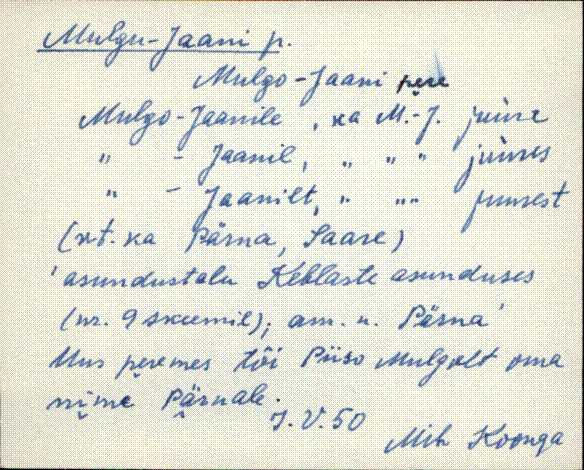 Mulgu-Jaani p.
Mulgo-Jaani pere
Mulgo-Jaanile, ka M.-J. juure
" - Jaanil, " " " juures
" - Jaanilt, " " " juurest
(vt. ka Pärna, Saare)
'asundustalu Keblaste asunduses
(nr. 9 skeemil); am. n. Pärna'
Uus peremes tõi Piiso Mulgolt oma
nime Pärnale.
I.V.50
Mih Koonga